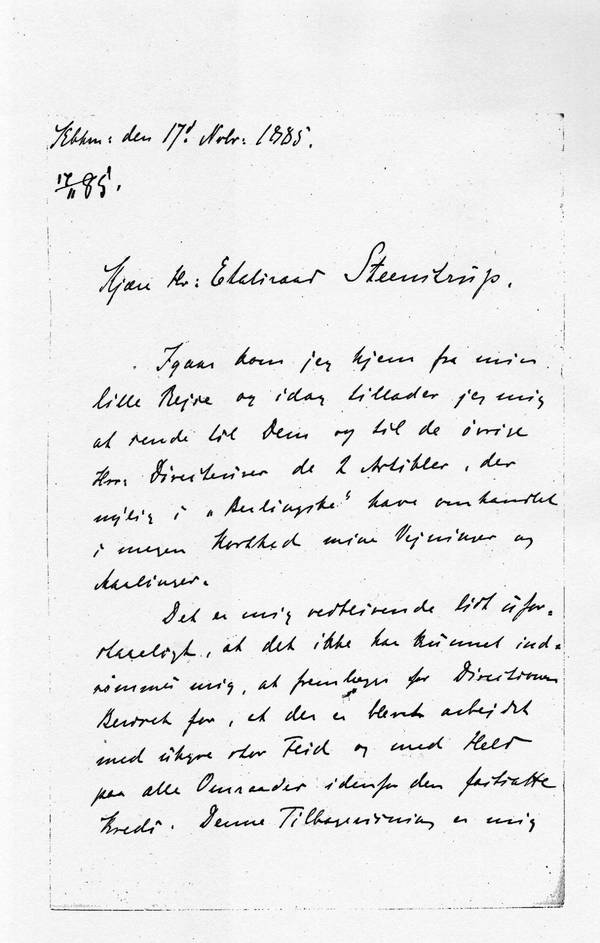 Kbhvn: den 17d Nobr: 1885.
17/11 85.
Kjære Hr: Etatsraad Steenstrup.
Igaar kom jeg hjem fra min
lille Rejse og idag tillader jeg mig
at sende til Dem og til de øvrige
Hrr: Directeurer de 2 Artikler, der
nylig i „Berlingske“ have omhandlet
i megen Korthed mine Vejninger og
Maalinger.
Det er mig vedblivende lidt ufor-
staaeligt, at det ikke har kunnet ind-
rømmes mig, at fremlægge for Directionen
Beviset for, at der er blevet arbejdet
med uhyre stor Flid og med Held
paa alle Omraader indenfor den fastsatte
Kreds. Denne Tilbagevisning er mig